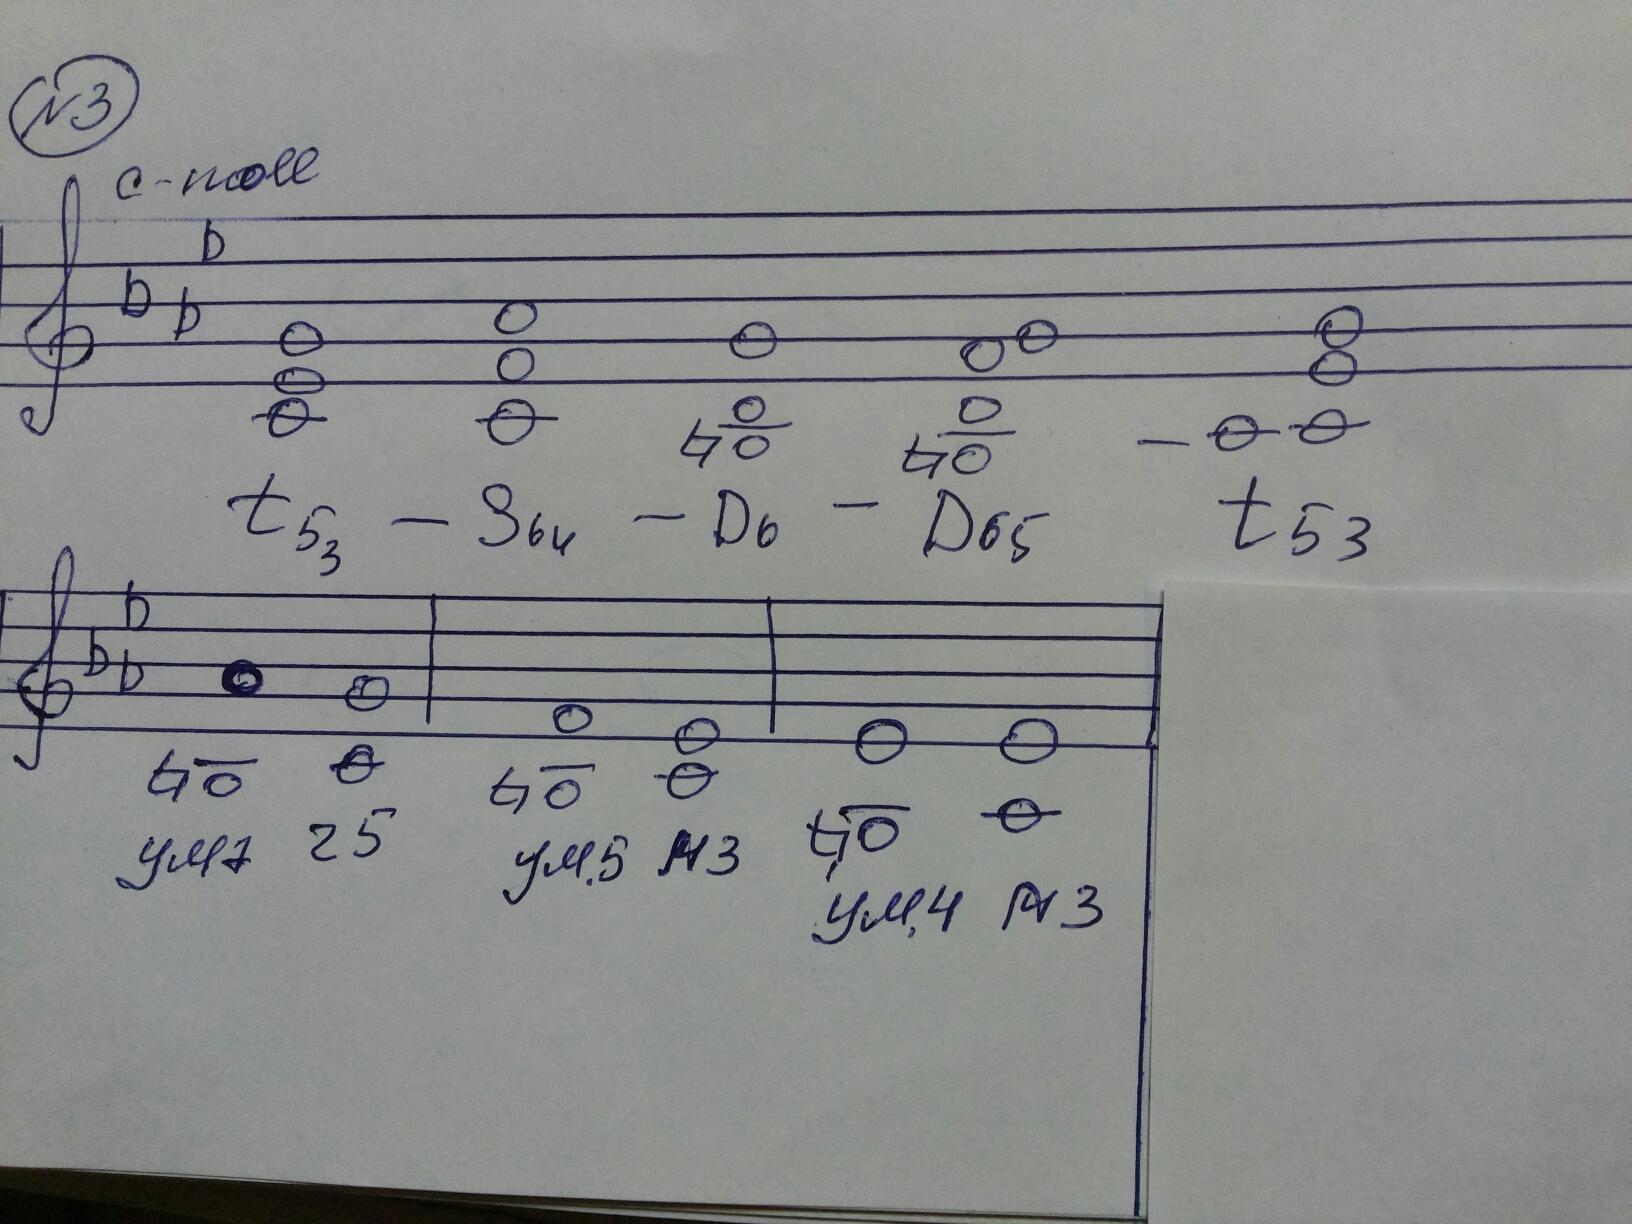 N3
c-moll
t53 – S64 – D6 – D65 t53
ум7 ч5 ум.5 м3 ум.4 м3